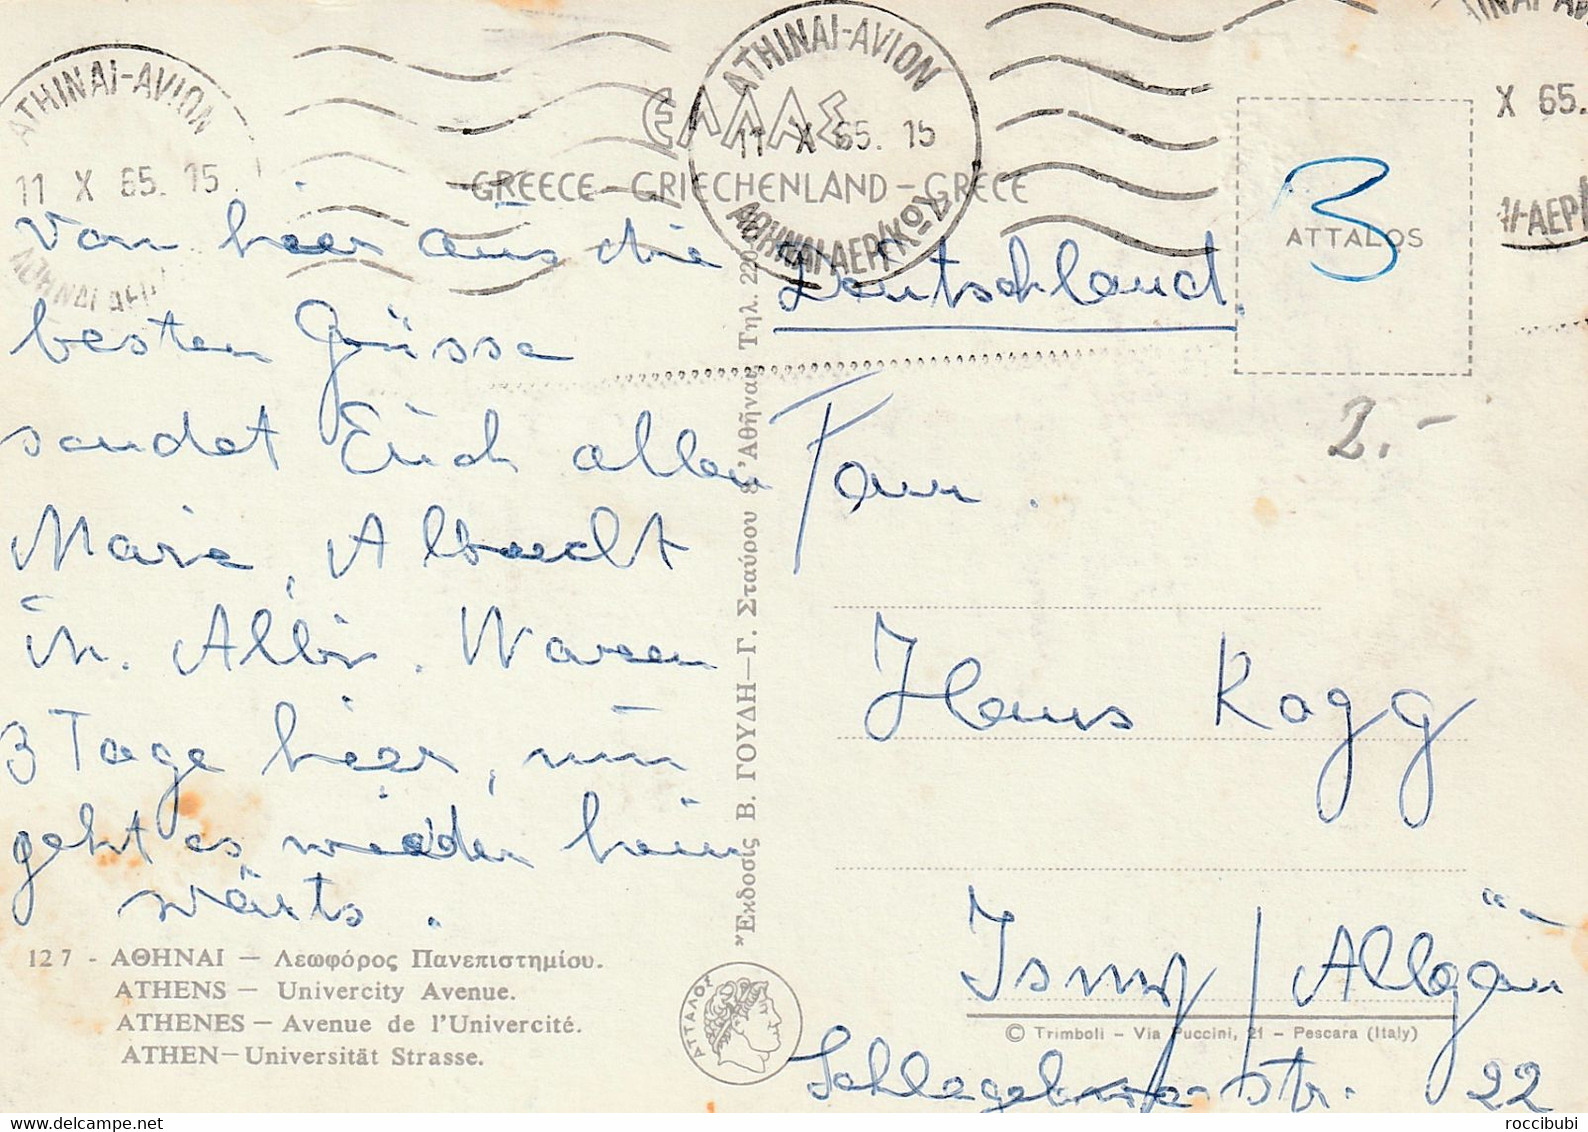 ATHINAI-AVION
11 X 65. 15
ΑΘΗΝΑΙ ΑΕΡ
ATHINAI-AVION
11 X 65. 15
ΑΘΗΝΑΙ ΑΕΡ/ΚΟΥ
X 65.
ΕΛΛΑΣ
GREECE - GRIECHENLAND - GRECE
ATTALOS
3
2.-
Von hier aus die
besten Grüsse
sendet Erich allen
Marie, Albrecht
in. Albin. Waren
3 Tage hier, nun
geht es wieder heim
wärts.
127 - ΑΘΗΝΑΙ — Λεωφόρος Πανεπιστημίου.
ATHENS — Univercity Avenue.
ATHENES — Avenue de l'Univercité.
ATHEN — Universität Strasse.
Ἔκδοσις Β. ΓΟΥΔΗ—Γ. Σταύρου 8 Ἀθῆναι Τηλ. 220
ΑΤΤΑΛΟΣ
Deutschland.
Fam.
Hans Kogg
Isny/Allgäu
© Trimboli - Via Puccini, 21 - Pescara (Italy)
str. 22
roccibubi